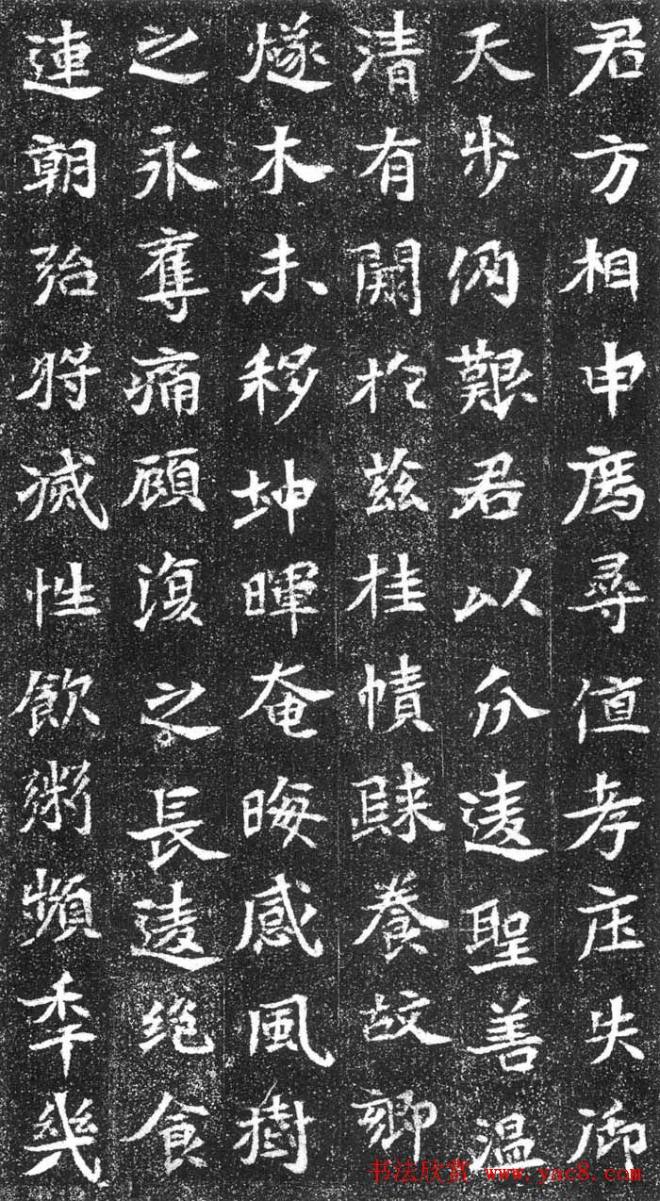 君方相申爲尋值孝庄失御
天步网艱君以久逺聖善温
清有闕扵兹桂幘疎養故卿
燧木未移坤暉奄晦感風樹
之永奪痛顧復之長逺绝食
連朝殆将滅性飲粥頻秊幾
书法欣赏 www.yac8.com